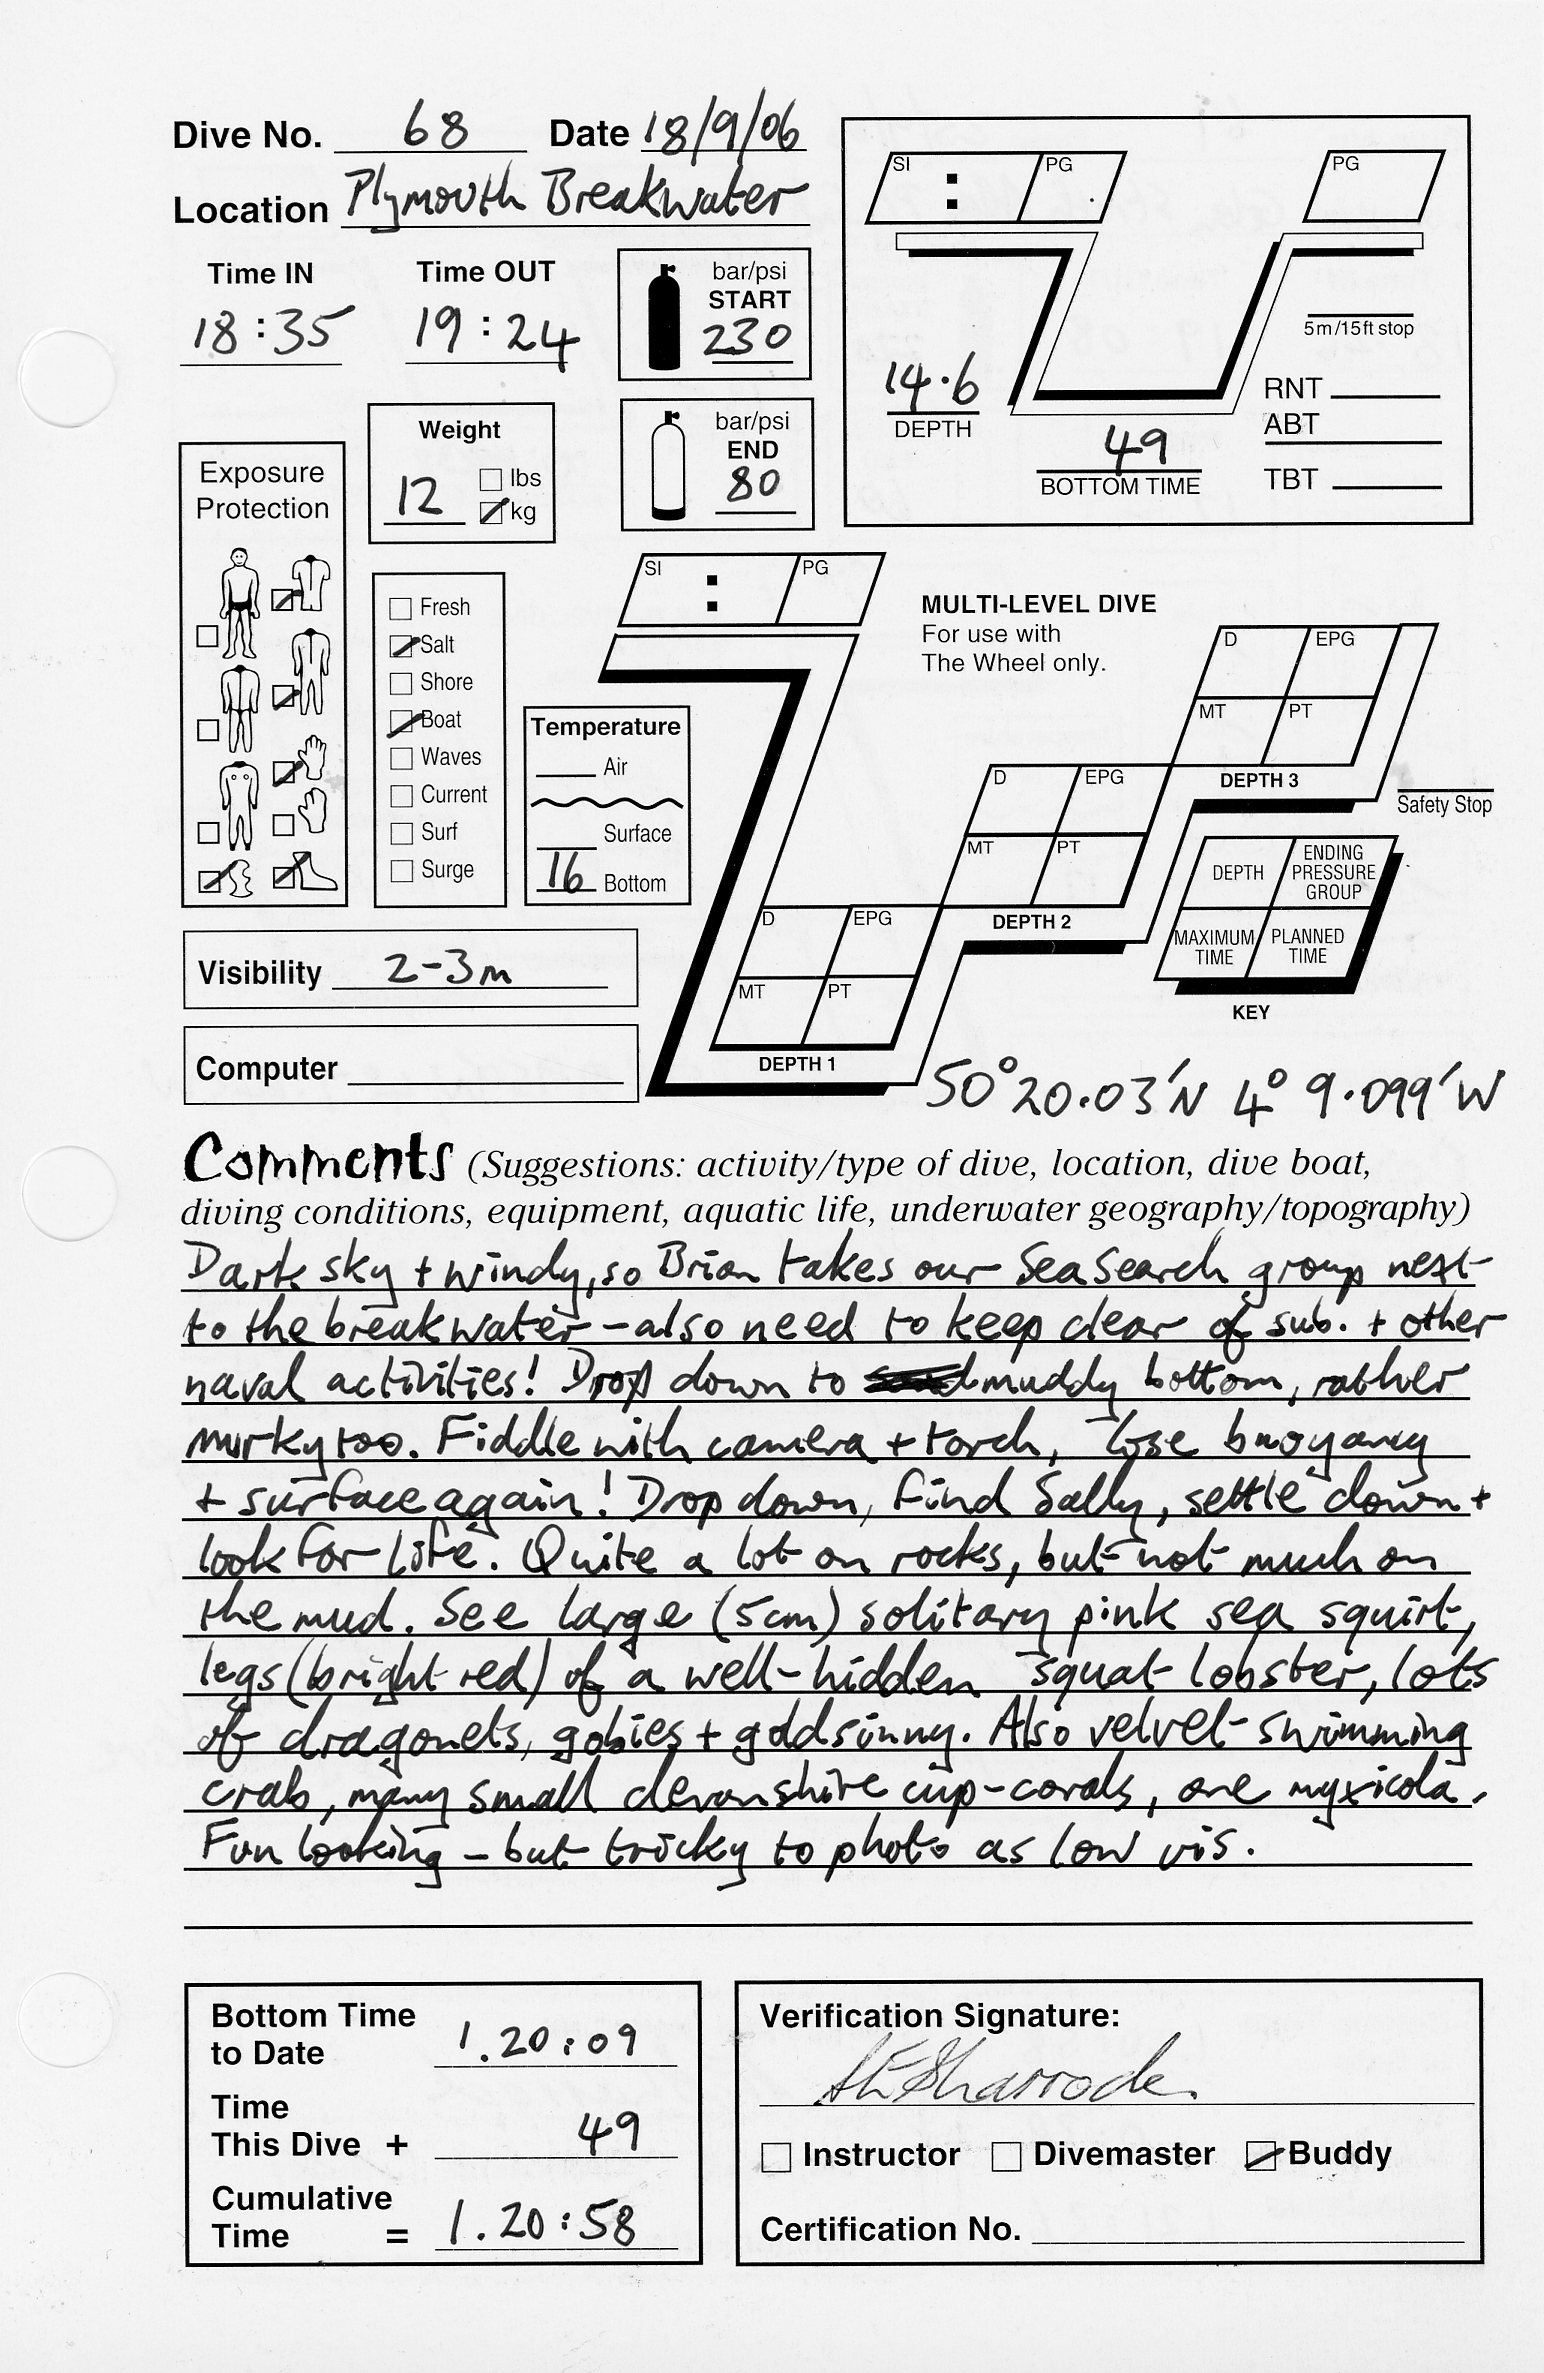 Dive No. 68 Date 18/9/06
Location Plymouth Breakwater
Time IN Time OUT
18:35 19:24
bar/psi
START
230
bar/psi
END
80
Weight
12 lbs
kg
Exposure
Protection
Fresh
Salt
Shore
Boat
Waves
Current
Surf
Surge
Temperature
Air
Surface
16 Bottom
Visibility 2-3m
Computer
SI : PG PG
5m/15ft stop
14.6
DEPTH
49
BOTTOM TIME
RNT
ABT
TBT
SI : PG
MULTI-LEVEL DIVE
For use with
The Wheel only.
D EPG
MT PT
DEPTH 3
Safety Stop
D EPG
MT PT
DEPTH 2
D EPG
MT PT
DEPTH 1
DEPTH ENDING PRESSURE GROUP
MAXIMUM TIME PLANNED TIME
KEY
50°20.03'N 4° 9.099'W
Comments (Suggestions: activity/type of dive, location, dive boat,
diving conditions, equipment, aquatic life, underwater geography/topography)
Dark sky + windy, so Brian takes our SeaSearch group next
to the breakwater - also need to keep clear of sub. + other
naval activities! Drop down to muddy bottom, rather
murky too. Fiddle with camera + torch, lose buoyancy
+ surface again! Drop down, find Sally, settle down +
look for life. Quite a lot on rocks, but not much on
the mud. See large (5cm) solitary pink sea squirt,
legs (bright red) of a well-hidden squat lobster, lots
of dragonets, gobies + goldsinny. Also velvet swimming
crab, many small devonshire cup-corals, one myxicola.
Fun looking - but tricky to photo as low vis.
Bottom Time
to Date 1.20:09
Time
This Dive + 49
Cumulative
Time = 1.20:58
Verification Signature:
Instructor Divemaster Buddy
Certification No.